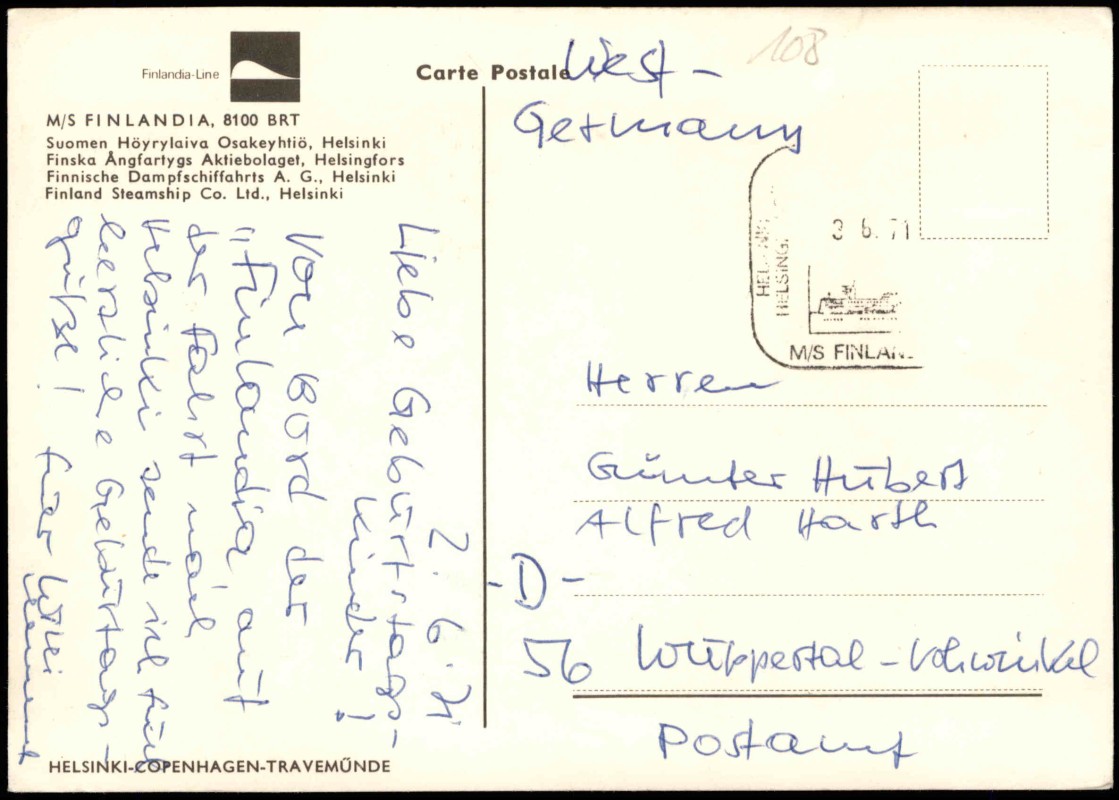 Finlandia-Line
M/S FINLANDIA, 8100 BRT
Suomen Höyrylaiva Osakeyhtiö, Helsinki
Finska Ångfartygs Aktiebolaget, Helsingfors
Finnische Dampfschiffahrts A. G., Helsinki
Finland Steamship Co. Ltd., Helsinki
2.6.71
Liebe Geburtstags-
kinder!
Von Bord der
„Finlandia, auf
der Fahrt nach
Helsinki sende ich Euch
herzliche Geburtstags-
grüße!
Euer Willi
HELSINKI-COPENHAGEN-TRAVEMÜNDE
Carte Postale
108
West-
Germany
3 6. 71
HELSINKI
HELSING.
M/S FINLAN
Herren
Günter Hubert
Alfred Harth
-D-
56 Wuppertal-Vohwinkel
Postamt